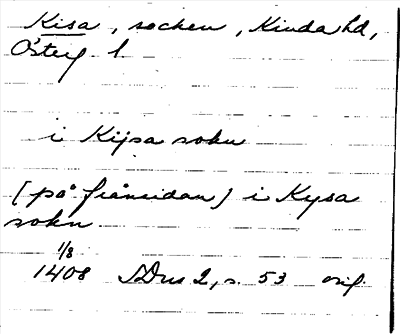 Kisa, socken, Kinda hd,
Österg. l
i Kijsa sokn
[på frånsidan] i Kysa
sokn
1/8
1408 SDns 2, s. 53 orig.